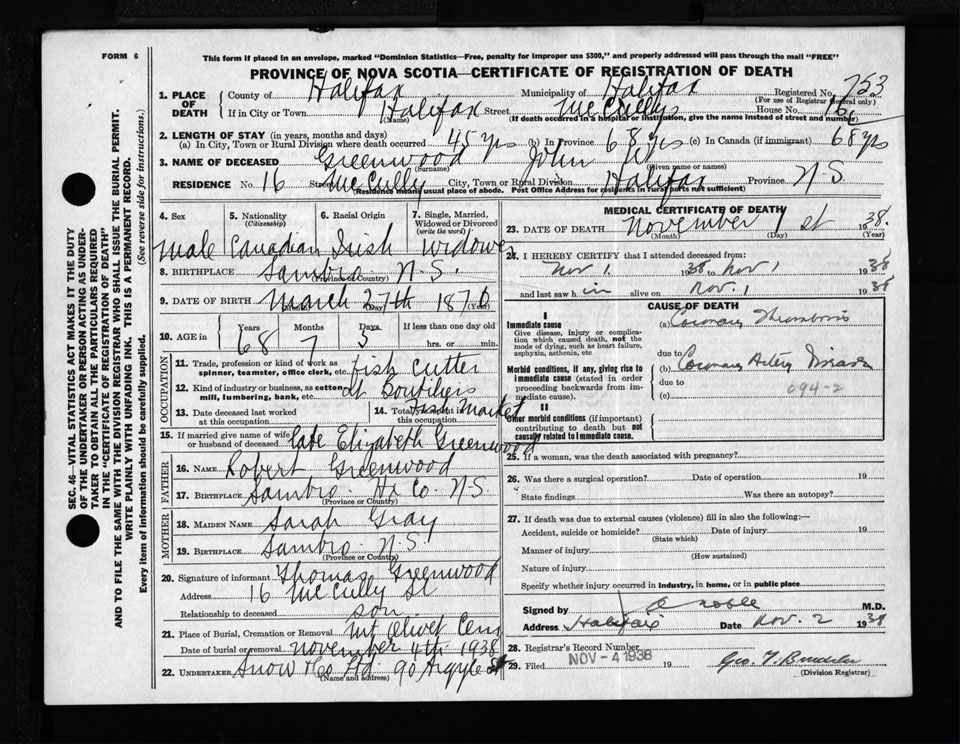 FORM 6
This form if placed in an envelope, marked "Dominion Statistics—Free, penalty for improper use $300," and properly addressed will pass through the mail "FREE"
PROVINCE OF NOVA SCOTIA—CERTIFICATE OF REGISTRATION OF DEATH
SEC. 46—VITAL STATISTICS ACT MAKES IT THE DUTY
OF THE UNDERTAKER OR PERSON ACTING AS UNDER-
TAKER TO OBTAIN ALL THE PARTICULARS REQUIRED
IN THE "CERTIFICATE OF REGISTRATION OF DEATH"
AND TO FILE THE SAME WITH THE DIVISION REGISTRAR WHO SHALL ISSUE THE BURIAL PERMIT.
WRITE PLAINLY WITH UNFADING INK. THIS IS A PERMANENT RECORD.
Every item of information should be carefully supplied. (See reverse side for instructions.)
1. PLACE OF DEATH County of Halifax Municipality of Halifax Registered No. 753
(For use of Registrar General only)
If in City or Town Halifax Street McCullys House No. 16
(Name) (If death occurred in a hospital or institution, give the name instead of street and number)
2. LENGTH OF STAY (in years, months and days)
(a) In City, Town or Rural Division where death occurred 45 yrs (b) In Province 68 yrs (c) In Canada (if immigrant) 68 yrs
3. NAME OF DECEASED Greenwood John W
(Surname) (Given name or names)
RESIDENCE No. 16 Street McCully City, Town or Rural Division Halifax Province N.S.
(Residence means usual place of abode. Post Office Address for residents in rural parts not sufficient)
4. Sex 5. Nationality (Citizenship) 6. Racial Origin 7. Single, Married, Widowed or Divorced (write the word)
male Canadian Irish widower
8. BIRTHPLACE Sambro N.S.
(Province or Country)
9. DATE OF BIRTH March 27th 1870
(Month) (Day) (Year)
10. AGE in Years Months Days If less than one day old
68 7 5 hrs. or min.
OCCUPATION
11. Trade, profession or kind of work as spinner, teamster, office clerk, etc. fish cutter
12. Kind of industry or business, as cotton mill, lumbering, bank, etc. at Boutiliers
fish Market
13. Date deceased last worked at this occupation 14. Total years spent in this occupation
15. If married give name of wife or husband of deceased late Elizabeth Greenwood
FATHER
16. NAME Robert Greenwood
17. BIRTHPLACE Sambro Hx Co. N.S.
(Province or Country)
MOTHER
18. MAIDEN NAME Sarah Gray
19. BIRTHPLACE Sambro N.S.
(Province or Country)
20. Signature of informant Thomas Greenwood
Address 16 McCully St
Relationship to deceased son
21. Place of Burial, Cremation or Removal Mt Olivet Cem
Date of burial or removal november 4th 1938
22. UNDERTAKER Snow & Co Ltd. 90 Argyle St
(Name and address)
MEDICAL CERTIFICATE OF DEATH
23. DATE OF DEATH November 1st 1938
(Month) (Day) (Year)
24. I HEREBY CERTIFY that I attended deceased from:
Nov 1 1938 to Nov 1 1938
and last saw him alive on Nov. 1 1938
CAUSE OF DEATH
I
Immediate cause
Give disease, injury or complica-
tion which caused death, not the
mode of dying, such as heart failure,
asphyxia, asthenia, etc
(a) Coronary Thrombosis
due to
Morbid conditions, if any, giving rise to
immediate cause (stated in order
proceeding backwards from im-
mediate cause).
(b) Coronary Artery Disease
due to 094-2
(c)
II
Other morbid conditions (if important)
contributing to death but not
causally related to immediate cause.
25. If a woman, was the death associated with pregnancy?
26. Was there a surgical operation? Date of operation 19
State findings Was there an autopsy?
27. If death was due to external causes (violence) fill in also the following:—
Accident, suicide or homicide? Date of injury 19
(State which)
Manner of injury
(How sustained)
Nature of injury
Specify whether injury occurred in industry, in home, or in public place
Signed by Noble M.D.
Address Halifax Date Nov. 2 1938
28. Registrar's Record Number
29. Filed NOV - 4 1938 19
(Division Registrar)